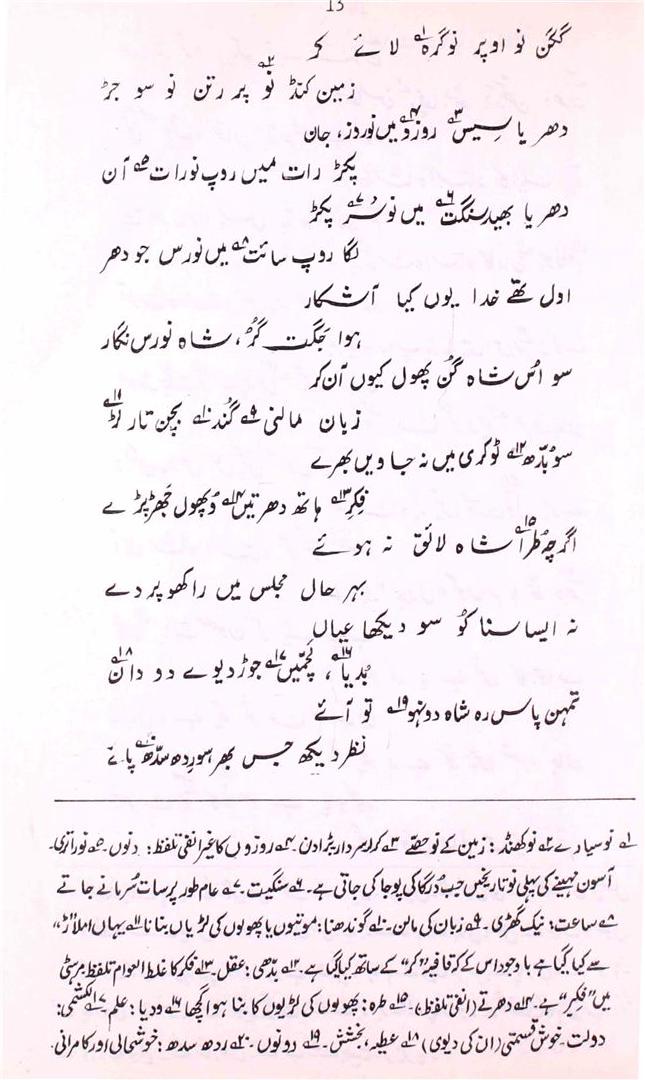 13
گگن نو اوپر نوگرہ ۱؎ لائے کر
زمین کنڈ نو ۲؎ پر رتن نو سو جڑ
دھریا سیس ۳؎ روزو ۴؎ میں نوروز، جان
پکڑ رات میں روپ نورات ۵؎ آن
دھر یا بھید سنگت ۶؎ میں نو سُر ۷؎ پکڑ
لگا روپ سائت ۸؎ میں نورس جو دھر
اول تھے خدا یوں کیا آشکار
ہوا جگت گُر، شاہ نورس نگار
سو اُس شاہ گن پھول کیوں آن کر
زبان مالنی ۹؎ گُندے ۱۰؎ بچن تار لڑ ۱۱؎
سو بُدّھ ۱۲؎ ٹوکری میں نہ جاویں بھرے
فِکِر ۱۳؎ ہاتھ دھرتیں ۱۴؎ وُ پھول جھڑ پڑے
اگرچہ طرا ۱۵؎ شاہ لائق نہ ہوئے
بہر حال مجلس میں راکھو پردے
نہ ایسا سنا کو سو دیکھا عیاں
بُدیا ۱۶؎، لچھمیں ۱۷؎ جوڑ دیوے دو دان ۱۸؎
تمہن پاس رہ شاہ دونہو ۱۹؎ تو آئے
نظر دیکھ جس بھر سو رِدھ سدّھ ۲۰؎ پائے
۱؎ نو سیارے ۲؎ نوکھنڈ: زمین کے نو حصّے ۳؎ کرار سردار بڑا دن۔ ۴؎ روزوں کا غیر انفی تلفظ: دنوں۔ ۵؎ نوراتری۔
آسون مہینے کی پہلی نو تاریخیں جب دُرگا کی پوجا کی جاتی ہے۔ ۶؎ سنگیت۔ ۷؎ عام طور پر سات سُر مانے جاتے
۸؎ ساعت: نیک گھڑی۔ ۹؎ زبان کی مالن۔ ۱۰؎ گوندھنا: موتیوں یا پھولوں کی لڑیاں بنانا ۱۱؎ یہاں املا "ڑ"
سے کیا گیا ہے باوجود اس کے کہ قافیہ "کر" کے ساتھ کیا گیا ہے۔ ۱۲؎ بدّھی: عقل۔ ۱۳؎ فکر کا غلط العوام تلفظ مرہٹی
میں "فِکِر" ہے۔ ۱۴؎ دھرتے (انفی تلفظ)۔ ۱۵؎ طرہ: پھولوں کی لڑیوں کا بنا ہوا گچھا ۱۶؎ ودیا: علم۔ ۱۷؎ لکشمی:
دولت۔ خوش قسمتی (ان کی دیوی) ۱۸؎ عطیہ، بخشش۔ ۱۹؎ دونوں۔ ۲۰؎ ردھ سدھ: خوشحالی اور کامرانی۔